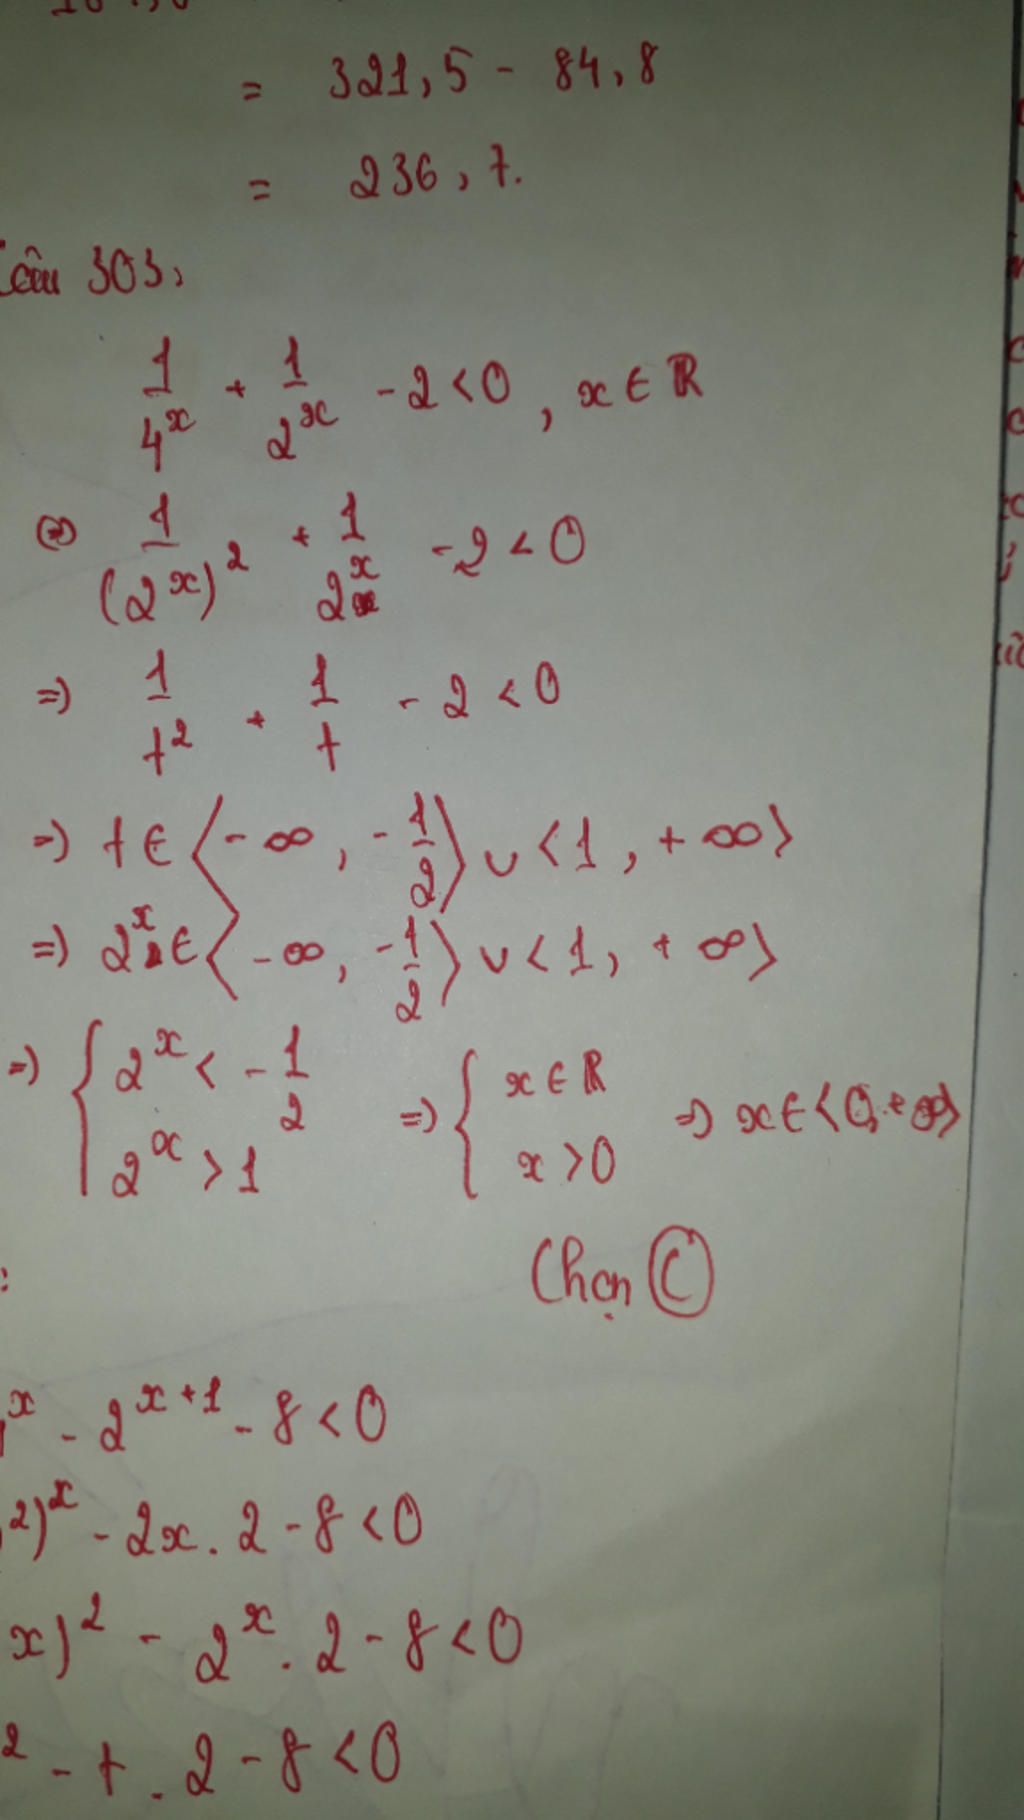 = 321,5 - 84,8
= 236,7.
Câu 303,
1/4^x + 1/2^x - 2 < 0, x ∈ ℝ
(=) 1/(2^x)^2 + 1/2^x - 2 < 0
=) 1/t^2 + 1/t - 2 < 0
=) t ∈ ⟨-∞, -1/2⟩ ∪ <1, +∞>
=) 2^x ∈ ⟨-∞, -1/2⟩ ∪ <1, +∞>
=) { 2^x < -1/2 =) { x ∈ ℝ =) x ∈ <0, +∞>
2^x > 1 x > 0
Chọn C
^x - 2^{x+1} - 8 < 0
2)^x - 2x . 2 - 8 < 0
x)^2 - 2^x . 2 - 8 < 0
2 - t . 2 - 8 < 0